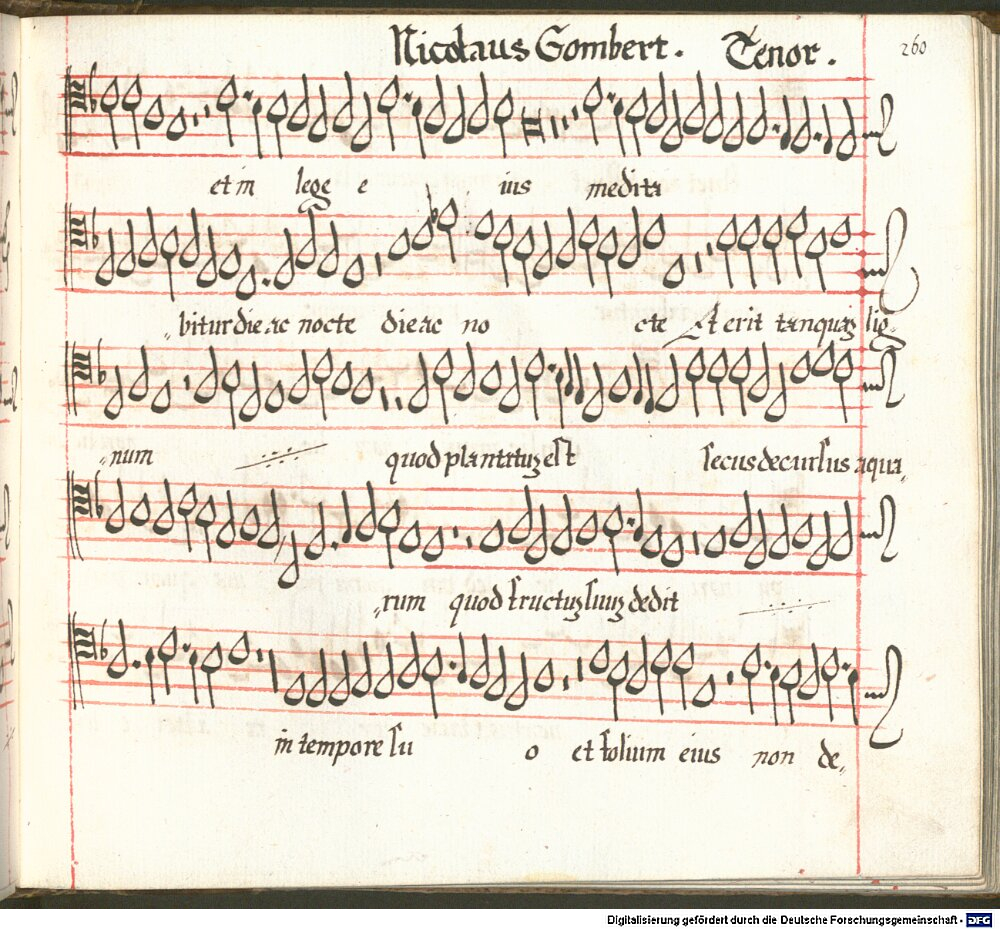 Nicolaus Gombert. Tenor. 260
et in lege e ius medita
bitur die ac nocte die ac no cte Et erit tanquaʒ lig
num quod plantatuʒ est secus decursus aqua
rum quod fructuʒ suuʒ dedit
in tempore su o et folium eius non de
Digitalisierung gefördert durch die Deutsche Forschungsgemeinschaft - DFG